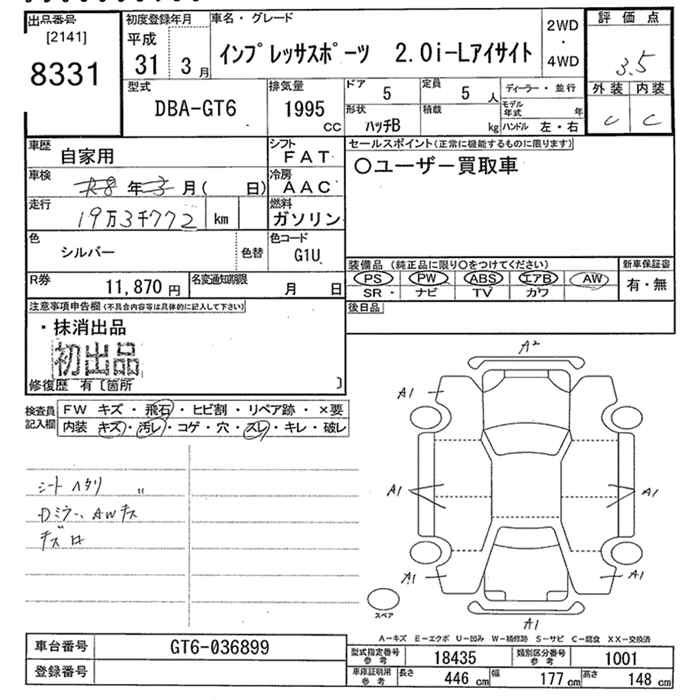 出品番号
[2141]
8331
初度登録年月
平成
31 3 月
車名・グレード
インプレッサスポーツ 2.0i-Lアイサイト
2WD
・
4WD
評価点
3.5
外装 内装
C C
型式
DBA-GT6
排気量
1995
CC
ドア 5
定員 5 人
ディーラー・並行
モデル年式 年
形状 ハッチB
積載 kg
ハンドル 左・右
車歴 自家用
シフト FAT
車検 年 月( 日)
冷房 AAC
走行 19万3千772 km
燃料 ガソリン
色 シルバー 色替
色コード G1U
R券 11,870 円
名変通知期限 月 日
セールスポイント(正常に機能するものに限ります)
〇ユーザー買取車
装備品(純正品に限り〇をつけてください)
PS PW ABS エアB AW
SR・ナビ TV カワ
新車保証書
有・無
後日品
注意事項申告欄(不具合内容等は具体的に記入して下さい)
・抹消出品
初出品
修復歴 有〔箇所 〕
検査員記入欄
FW キズ・飛石・ヒビ割・リペア跡・×要
内装 キズ・汚レ・コゲ・穴・スレ・キレ・破レ
シート ヘタリ 〃
Dミラー、AWキズ
キズ
A2
A1 A1
A1 A1
A1 A1
A1
スペア
A-キズ E-エクボ U-凹み W-補修跡 S-サビ C-腐食 XX-交換済
車台番号 GT6-036899
登録番号
型式指定番号 参考 18435
類別区分番号 参考 1001
車庫証明用 参考 長さ 446 cm 幅 177 cm 高さ 148 cm